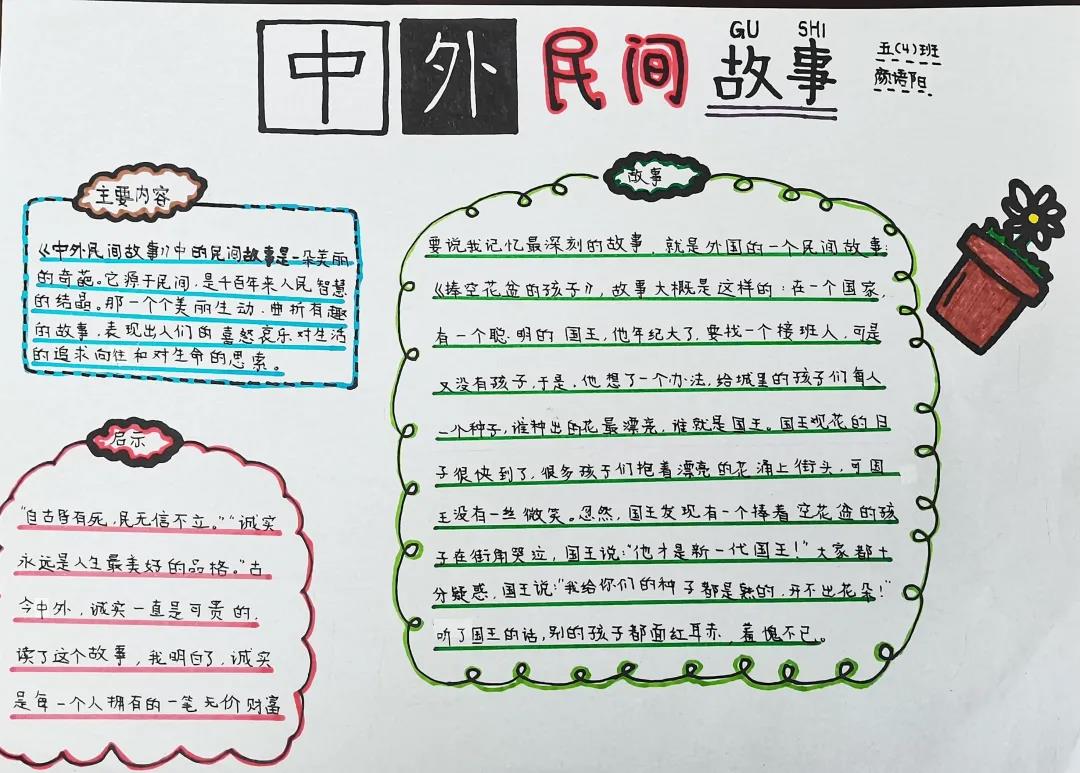 GU SHI
中外民间故事
五(4)班
颜语阳
主要内容
《中外民间故事》中的民间故事是一朵美丽
的奇葩。它源于民间，是千百年来人民智慧
的结晶。那一个个美丽生动、曲折有趣
的故事，表现出人们的喜怒哀乐对生活
的追求向往和对生命的思索。
启示
“自古皆有死，民无信不立。”“诚实
永远是人生最美好的品格。”古
今中外，诚实一直是可贵的，
读了这个故事，我明白了，诚实
是每一个人拥有的一笔无价财富
故事
要说我记忆最深刻的故事，就是外国的一个民间故事：
《捧空花盆的孩子》，故事大概是这样的：在一个国家，
有一个聪明的国王，他年纪大了，要找一个接班人，可是
又没有孩子，于是，他想了一个办法，给城里的孩子们每人
一个种子，谁种出的花最漂亮，谁就是国王。国王观花的日
子很快到了，很多孩子们抱着漂亮的花涌上街头，可国
王没有一丝微笑。忽然，国王发现有一个捧着空花盆的孩
子在街角哭泣，国王说：“他才是新一代国王！”大家都十
分疑惑，国王说：“我给你们的种子都是熟的，开不出花朵！”
听了国王的话，别的孩子都面红耳赤，羞愧不已。